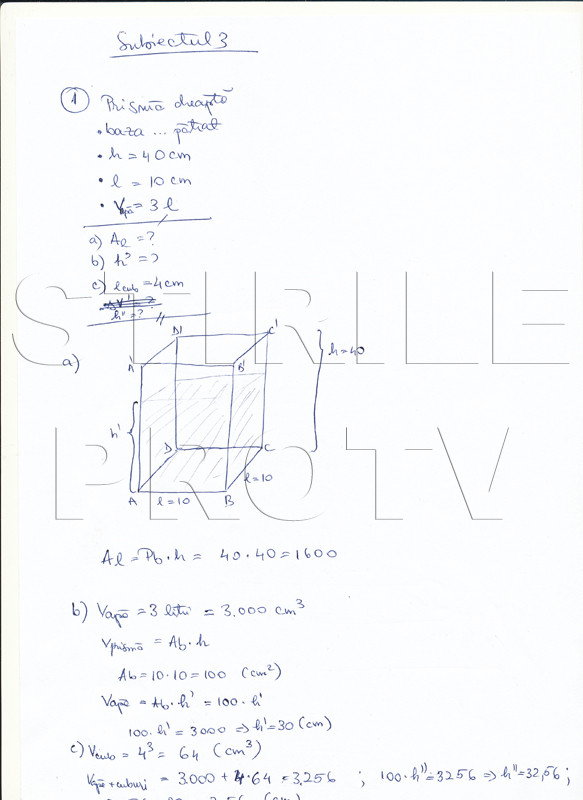 Subiectul 3
1 Prismă dreaptă
• baza ... pătrat
• h = 40 cm
• l = 10 cm
• Vapă = 3 l
a) Al = ?
b) h' = ?
c) lcub = 4cm
h'' = ?
ȘTIRILE
PROTV
a)
D' C'
A' B'
h = 40
h'
D C
l = 10
A l = 10 B
Al = Pb · h = 40 · 40 = 1600
b) Vapă = 3 litri = 3.000 cm³
Vprismă = Ab · h
Ab = 10 · 10 = 100 (cm²)
Vapă = Ab · h' = 100 · h'
100 · h' = 3000 ⇒ h' = 30 (cm)
c) Vcub = 4³ = 64 (cm³)
Vapă+cuburi = 3.000 + 4 · 64 = 3.256 ; 100 · h'' = 3256 ⇒ h'' = 32,56 ;